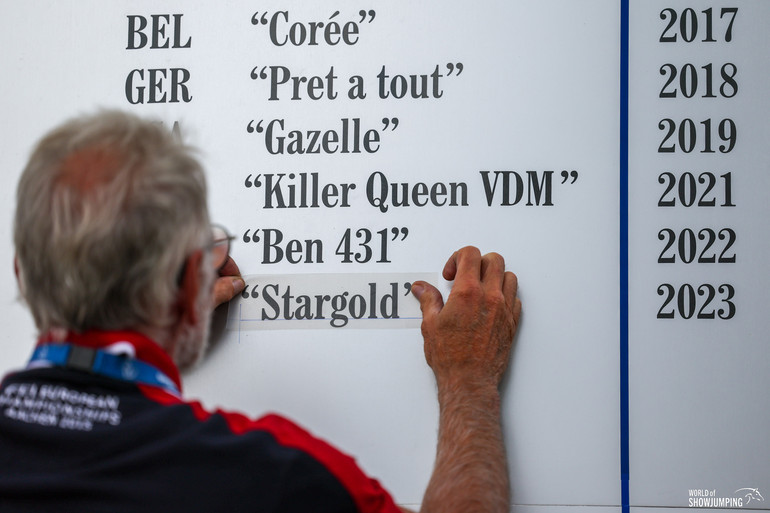 BEL "Corée" 2017
GER "Pret a tout" 2018
"Gazelle" 2019
"Killer Queen VDM" 2021
"Ben 431" 2022
"Stargold" 2023
EUROPEAN
WORLD of
SHOWJUMPING